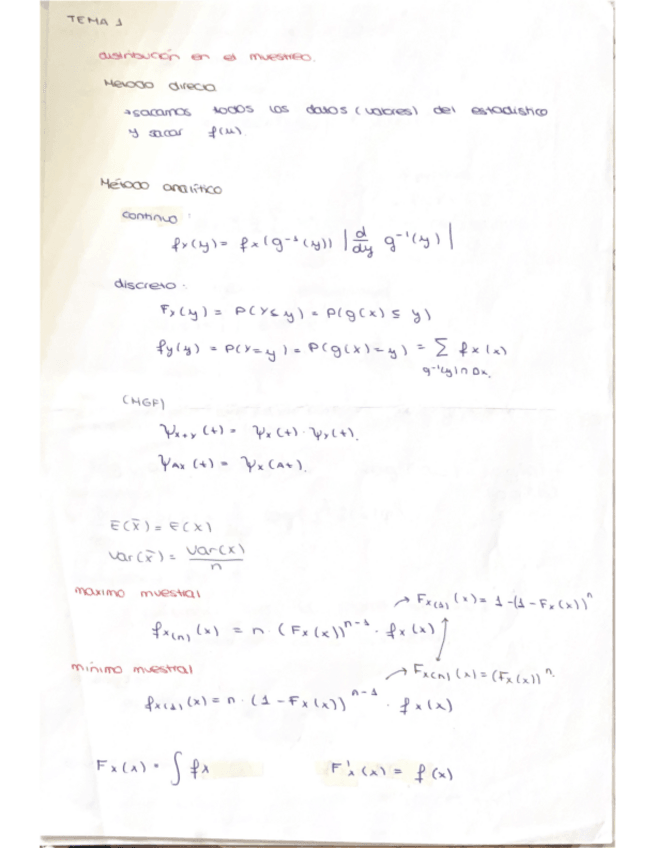 TEMA 1
distribución en el muestreo.
Método directo
→ sacamos todos los datos (valores) del estadístico
y sacar f(u).
Método analítico
continuo:
fy(y) = fx(g⁻¹(y)) |d/dy g⁻¹(y)|
discreto:
Fy(y) = P(Y≤y) = P(g(x) ≤ y)
fy(y) = P(Y=y) = P(g(x)=y) = Σ fx(x)
g⁻¹(y) ∩ Dx.
(MGF)
Ψx+y (t) = Ψx(t) · Ψy(t).
ΨAx (t) = Ψx(At).
E(x̄) = E(x)
Var(x̄) = Var(x)/n
maximo muestral
Fx(1) (x) = 1-(1-Fx(x))ⁿ
fx(n) (x) = n · (Fx(x))ⁿ⁻¹ · fx(x)
mínimo muestral
Fx(n) (x) = (Fx(x))ⁿ.
fx(1) (x) = n · (1 - Fx(x))ⁿ⁻¹ · fx(x)
Fx(x) = ∫ fx F'x(x) = f(x)